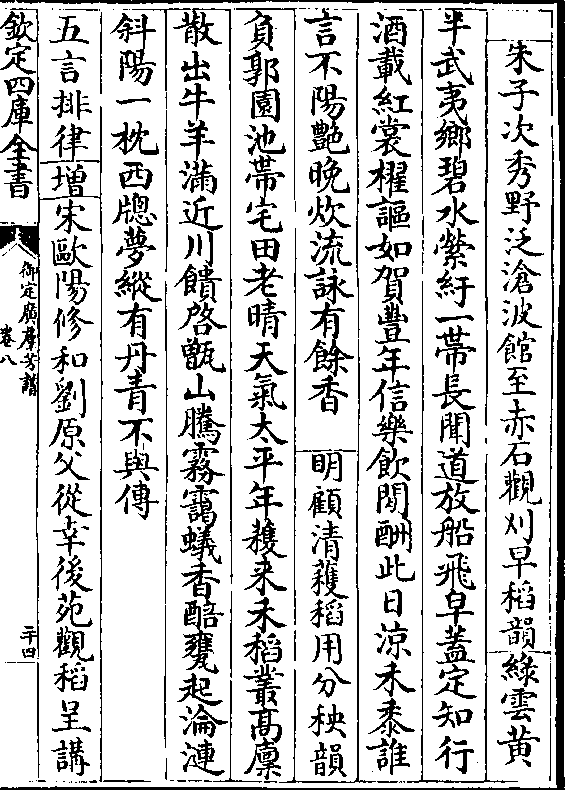 朱子次秀野泛滄波館至赤石觀刈早稻韻綠雲黃
半武夷鄉碧水縈紆一帶長聞道放船飛皁蓋定知行
酒載紅裳櫂謳如賀豐年信樂飲閒酬此日涼禾黍誰
言不陽豔晩炊流詠有餘香　明顧清穫稻用分秧韻
負郭園池帶宅田老晴天氣太平年穫来禾稻叢髙廪
散出牛羊滿近川饋啓甑山騰霧靄蟻香醅甕起淪漣
斜陽一枕西牕夢縱有丹青不與傳
五言排律增宋歐陽修和劉原父從幸後苑觀稻呈講
欽定四庫全書
御定廣羣芳譜
卷八
二十四